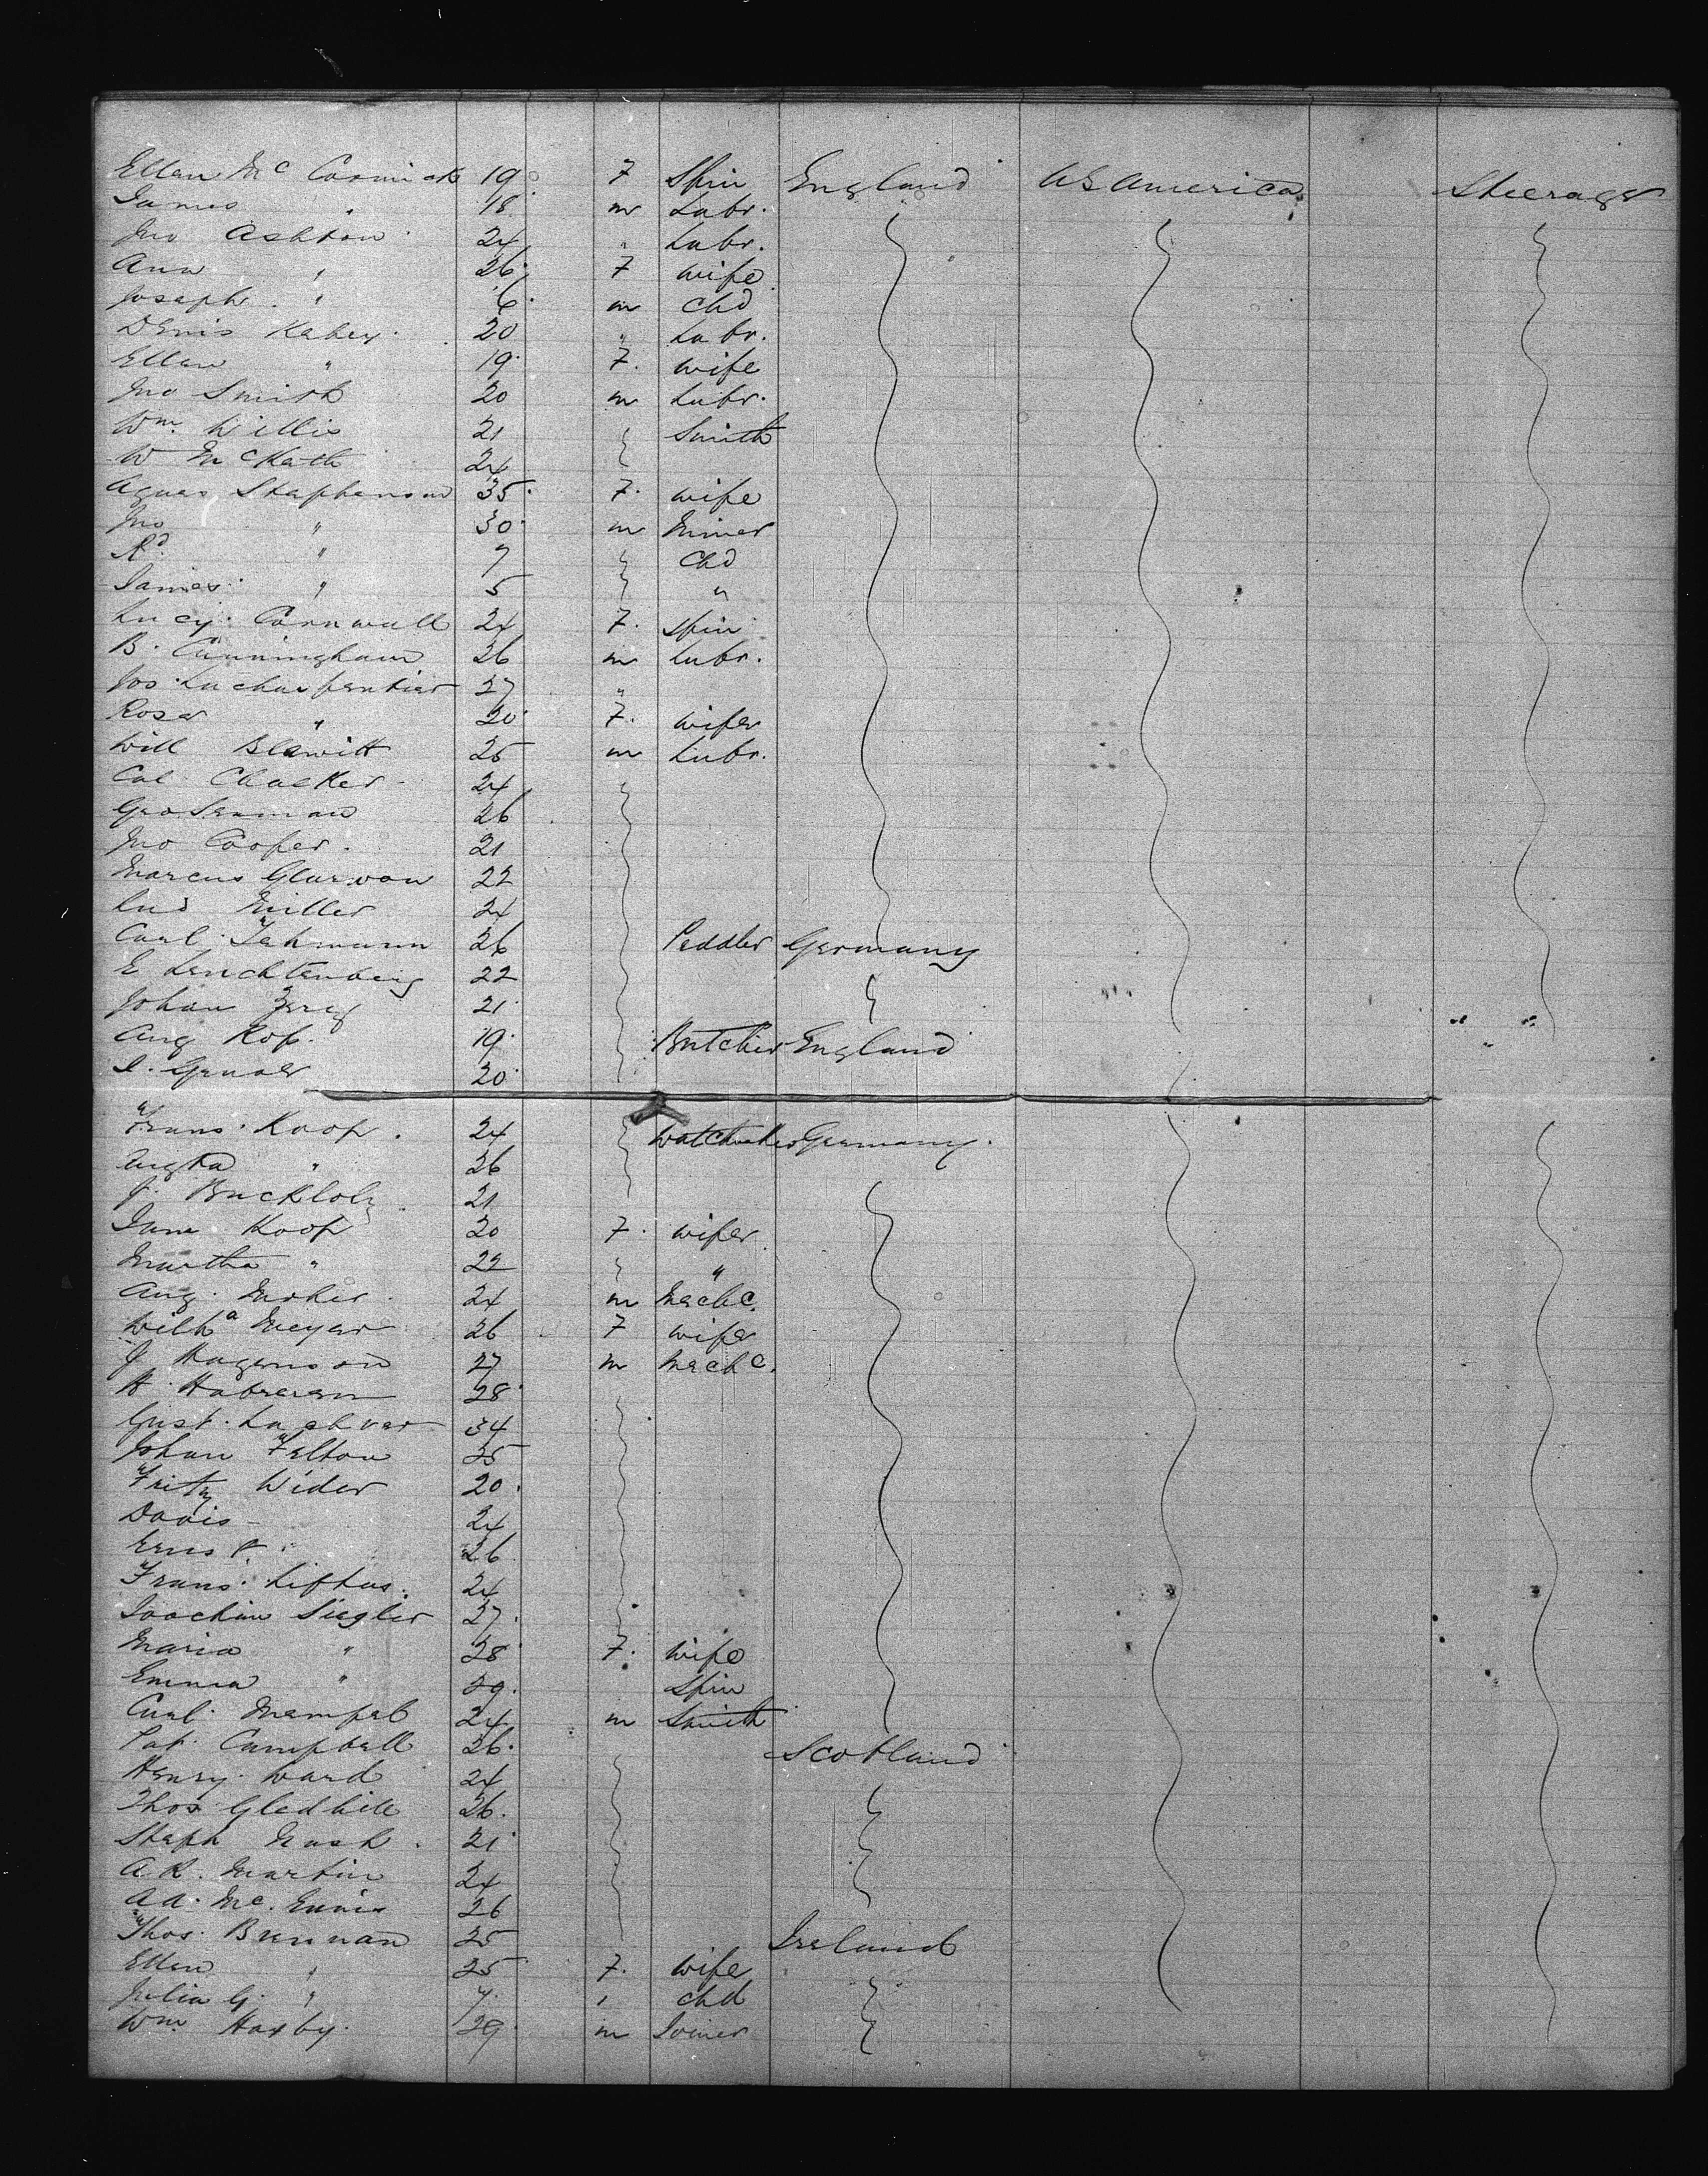 Ellen Mc Cormick 19 F Spin England US America Steerage
James " 18 m Labr.
Jno Ashton 24 " Labr.
Ann " 26 F wife
Joseph " 6 m Chd
Denis Kahey 20 " Labr.
Ellen " 19 F. wife
Jno Smith 20 m Labr.
Wm. Willis 21 Smith
W Mc Kath 24
Agnes Stephenson 35 F. wife
Jno " 30 m Miner
Rd. " 7 Chd
James " 5 "
Lucy Cornwall 24 F. Spin
B. Cunningham 26 m Labr.
Jos. Lacharpentier 27 "
Rosa " 20 F. wife
Will Blewitt 25 m Labr.
Cal Cloaker 24
Geo Seaman 26
Jno Cooper. 21
Marcus 22
Miller 24
Carl Tehmann 26 Peddler Germany
E Leuchtenberg 22
Johan 21
Aug Kop. 19 Butcher England
20
Frans. Koop. 24 Watchmker Germany.
" 26
J. Buckholz 21
Jane Koop 20 F. wife
Martha " 22 "
Aug. 24 m Mechc.
Wilha Meyer 26 F wife
J 27 m Mechc.
H. 28
Gust. 34
Johan Felton 25
Fritz Wider 20
Davis 24
Ernst 26
Frans. Liftus. 24
Joachim Siegler 27.
Maria " 28 F. wife
Emma " 29. Spin
Carl Mempel 24 m Smith
Pat. Campbell 26. Scotland
Henry Ward 24
Thos Gledhill 26.
Steph Nash. 21
A R. Martin 24
Ad. Mc. Ennis 26
Thos. Brennan 25 Ireland
Ellen " 25 F. wife
Julia G. " 7. " chd
Wm. Haxby 29 m Joiner